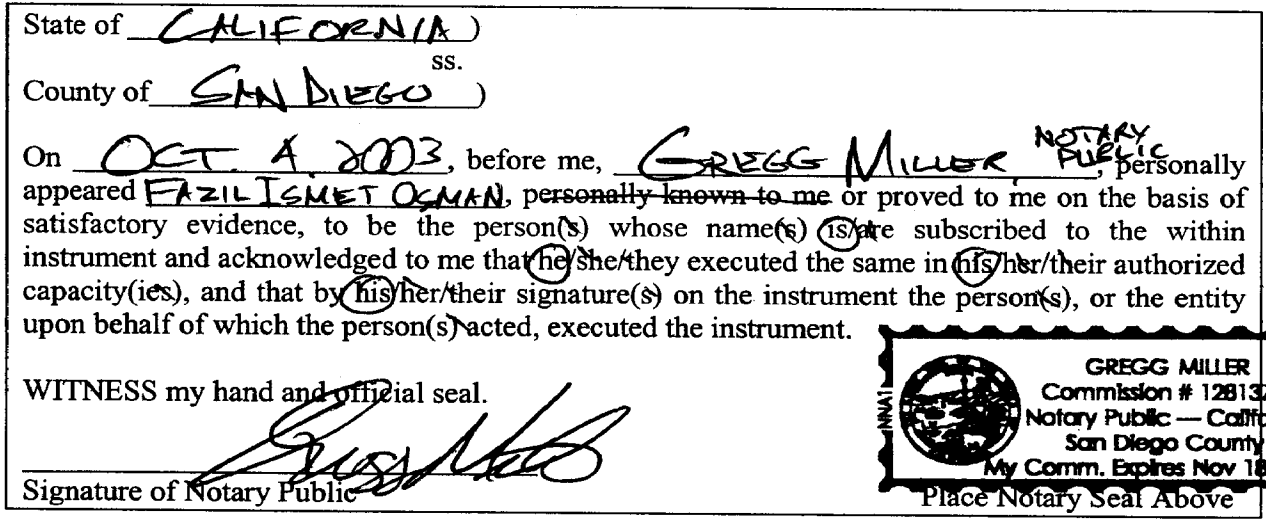 State of CALIFORNIA )
ss.
County of SAN DIEGO )
On OCT. 4, 2003, before me, GREGG MILLER, NOTARY PUBLIC, personally
appeared FAZIL ISMET OSMAN, personally known to me or proved to me on the basis of
satisfactory evidence, to be the person(s) whose name(s) is/are subscribed to the within
instrument and acknowledged to me that he/she/they executed the same in his/her/their authorized
capacity(ies), and that by his/her/their signature(s) on the instrument the person(s), or the entity
upon behalf of which the person(s) acted, executed the instrument.
WITNESS my hand and official seal.
NNA1
GREGG MILLER
Commission # 12813
Notary Public — Califo
San Diego County
My Comm. Expires Nov 18
Signature of Notary Public
Place Notary Seal Above